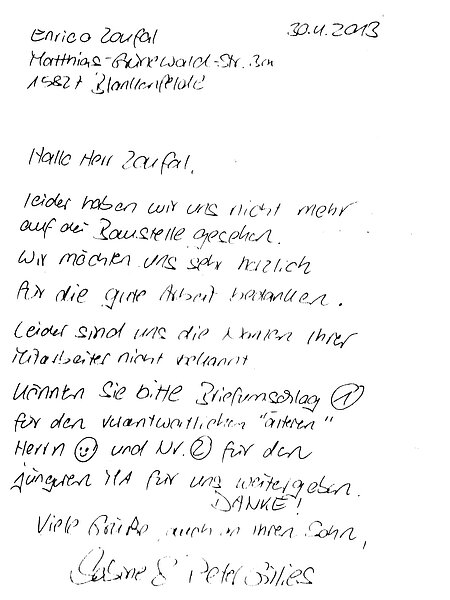 Enrico Zoufal
30.4.2013
Matthias-Grünewald-Str. 3a
15827 Blankenfelde
Hallo Herr Zoufal,
leider haben wir uns nicht mehr
auf der Baustelle gesehen.
Wir möchten uns sehr herzlich
für die gute Arbeit bedanken.
Leider sind uns die Namen Ihrer
Mitarbeiter nicht bekannt
Könnten Sie bitte Briefumschlag ①
für den verantwortlichen "älteren"
Herrn ☺ und Nr. ② für den
jüngeren MA für uns weitergeben.
DANKE!
Viele Grüße, auch an Ihren Sohn,
Sabine & Peter